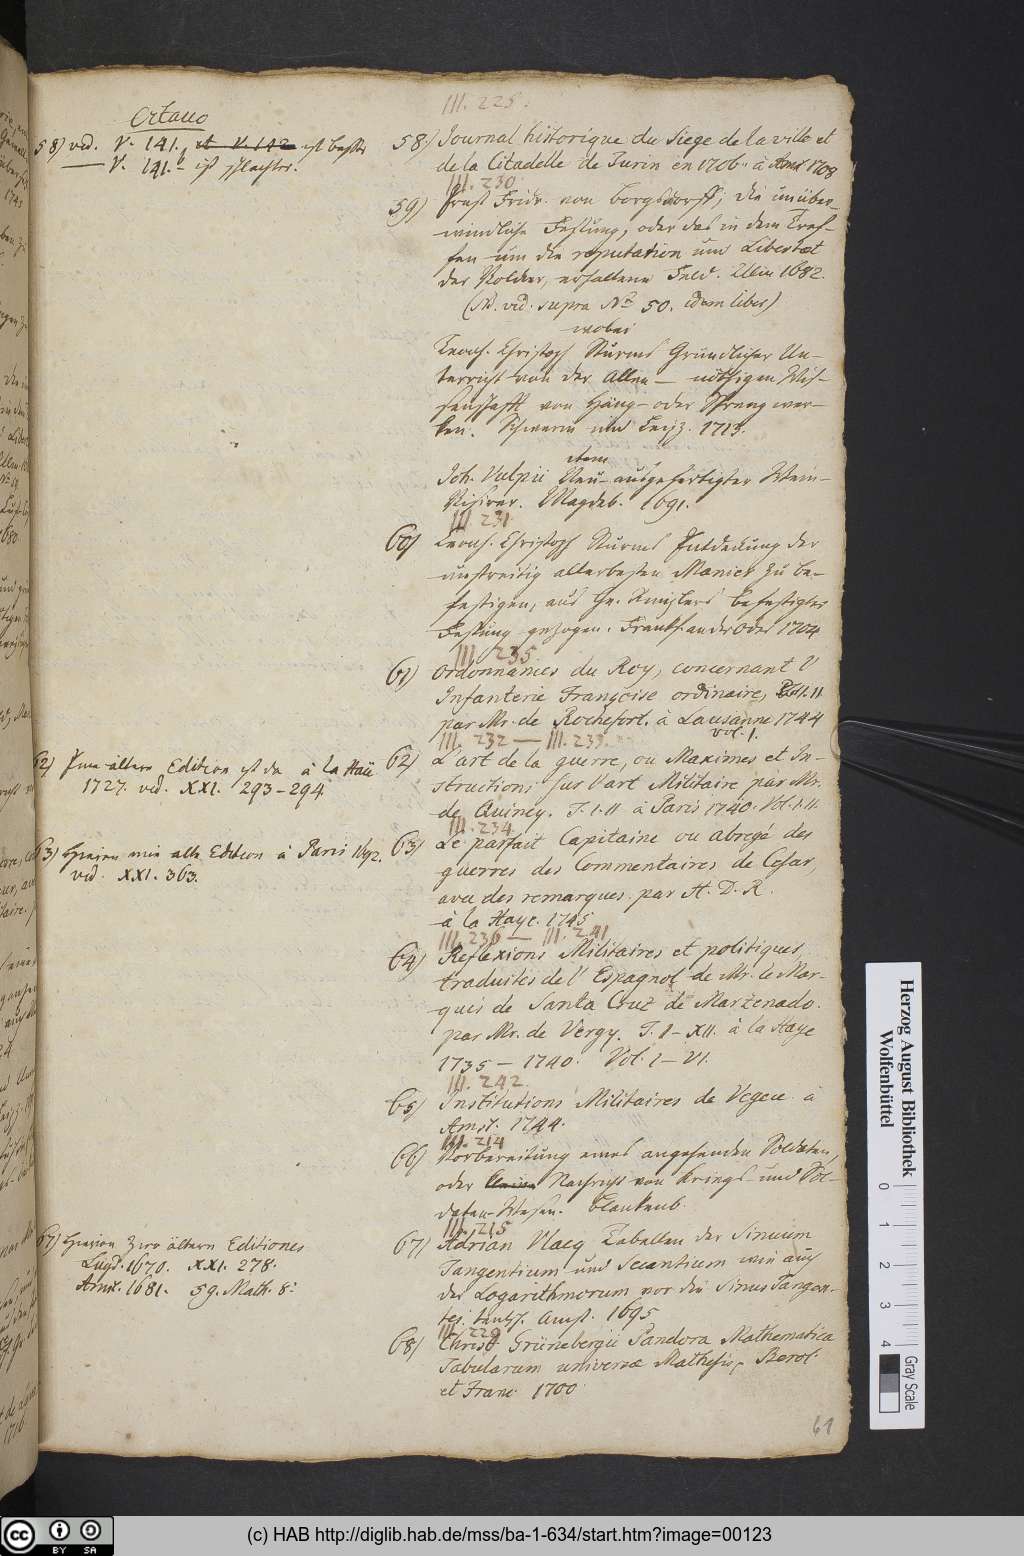 Octavo
58) vid. V. 141. et V. 142 ist besser
V. 141. ist schlechter.
III. 225.
58) Journal historique du Siege de la ville et
de la Citadelle de Turin en 1706. à Amst 1708
III. 230
59) Ernst Fridr. von Borgsdorff; die unüber-
windliche Festung, oder das in dem Tref-
fen um die reputation und Libertaet
der Völcker, erhaltene Feld. Ulm 1682.
(N. vid. supra No 50. idem liber)
wobei
Leonh. Christoph Sturms Gründlicher Un-
terricht von der Allen — nöthigen Wis-
senschafft von Häng- oder Spreng wer-
ken. Schwerin und Leipz. 1713.
item
Joh. Vulpii Neu-ausgefertigter Wein-
Visirer. Magdeb. 1691.
III. 231
60) Leonh. Christoph Sturms Entdeckung der
unstreitig allerbesten Manier zu be-
festigen, aus Hr. Rimplers befestigter
Festung gezogen. Franckf. an der Oder 1704
III. 235
61) Ordonnances du Roy, concernant l'
Infanterie Françoise ordinaire, T. I. II
par Mr. de Rochefort. à Lausanne 1744
vol. 1.
III. 232 — III. 233.
62) Eine ältere Edition ist da à la Haïe
1727. vid. XXI. 293-294.
62) L'art de la guerre, ou Maximes et In-
structions sur l'art Militaire par Mr.
de Quincy. T. I. II à Paris 1740. Vol. I. II.
III. 234
63) Hievon eine alte Edition à Paris 1692.
vid. XXI. 363.
63) Le parfait Capitaine ou abregé des
guerres des Commentaires de Cesar,
avec des remarques. par H. D. R.
à la Haye. 1745
III. 236 — III. 241
64) Reflexions Militaires et politiques,
traduites de l'Espagnol de Mr. le Mar-
quis de Santa Cruz de Marzenado.
par Mr. de Vergy. T. I - XII. à la Haye
1735 — 1740. Vol. I - VI.
III. 242
65) Institutions Militaires de Vegece. à
Amst. 1744.
III. 214
66) Vorbereitung eines angehenden Soldaten,
oder Nachricht von Kriegs- und Sol-
daten-Wesen. Blankenb.
III. 215
67) Hievon zwo ältere Editiones
Lugd. 1670. XXI. 278.
Amst. 1681. 59. Math. 8º
67) Adrian Vlacq Tabellen der Sinuum
Tangentium und Secantium wie auch
der Logarithmorum vor die Sinus Tangen-
tes. teutsch. Amst. 1695
III. 229
68) Christ. Grünebergii Pandora Mathematica
Tabularum universæ Mathesis, Berol.
et Franc. 1700
61
Herzog August Bibliothek
Wolfenbüttel
0 1 2 3 4
Gray Scale
cc BY SA
(c) HAB http://diglib.hab.de/mss/ba-1-634/start.htm?image=00123